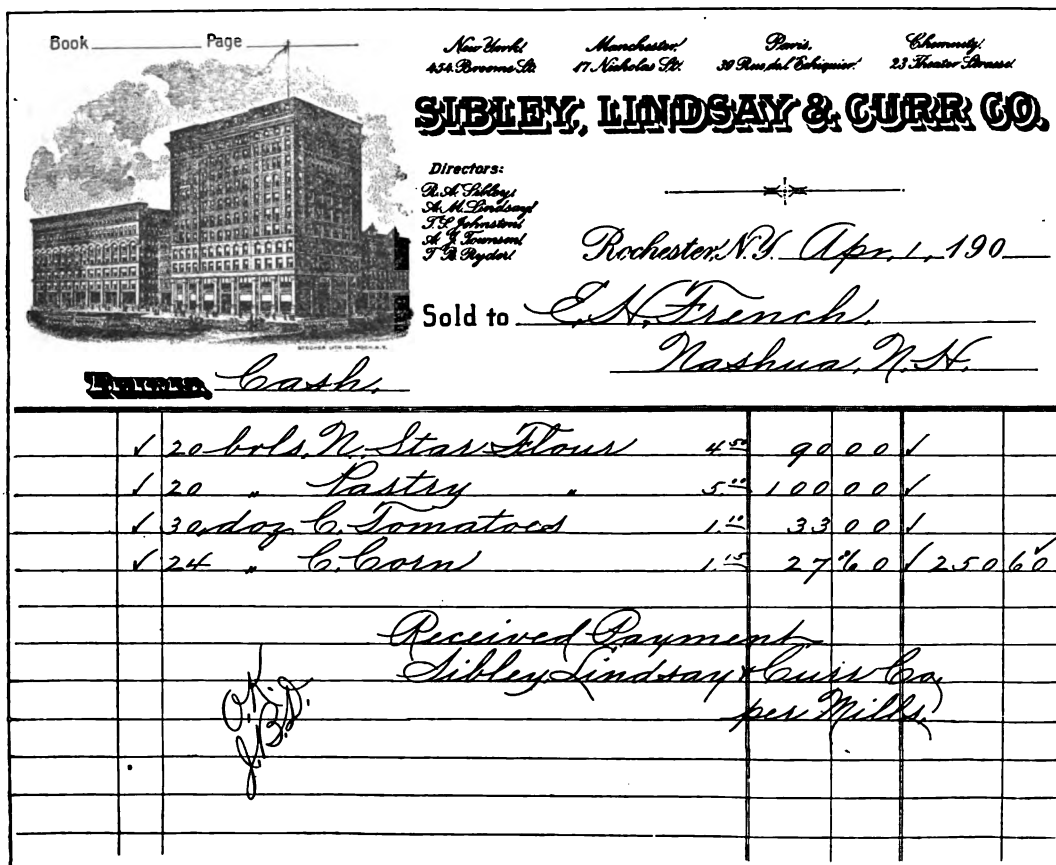 Book Page
New York. Manchester. Paris. Chemnitz.
454 Broome St. 17 Nicholas St. 39 Rue de l'Echiquier. 23 Theater Strasse.
SIBLEY, LINDSAY & CURR CO.
Directors:
R. A. Sibley
A. M. Lindsay
T. S. Johnston
A. J. Townson
T. B. Ryder
Rochester, N.Y. Apr. 1, 190
Sold to E. H. French.
Nashua, N.H.
STECHER LITH. CO. ROCH. N.Y.
Terms, Cash.
✓ 20 bbls. N. Star Flour 4.50 90 00 ✓
✓ 20 " Pastry " 5.00 100 00 ✓
✓ 30 doz C. Tomatoes 1.10 33 00 ✓
✓ 24 " C. Corn 1.15 27 60 ✓ 250 60 ✓
Received Payment
Sibley Lindsay & Curr Co,
per Mills.
O.K.
J.B.D.